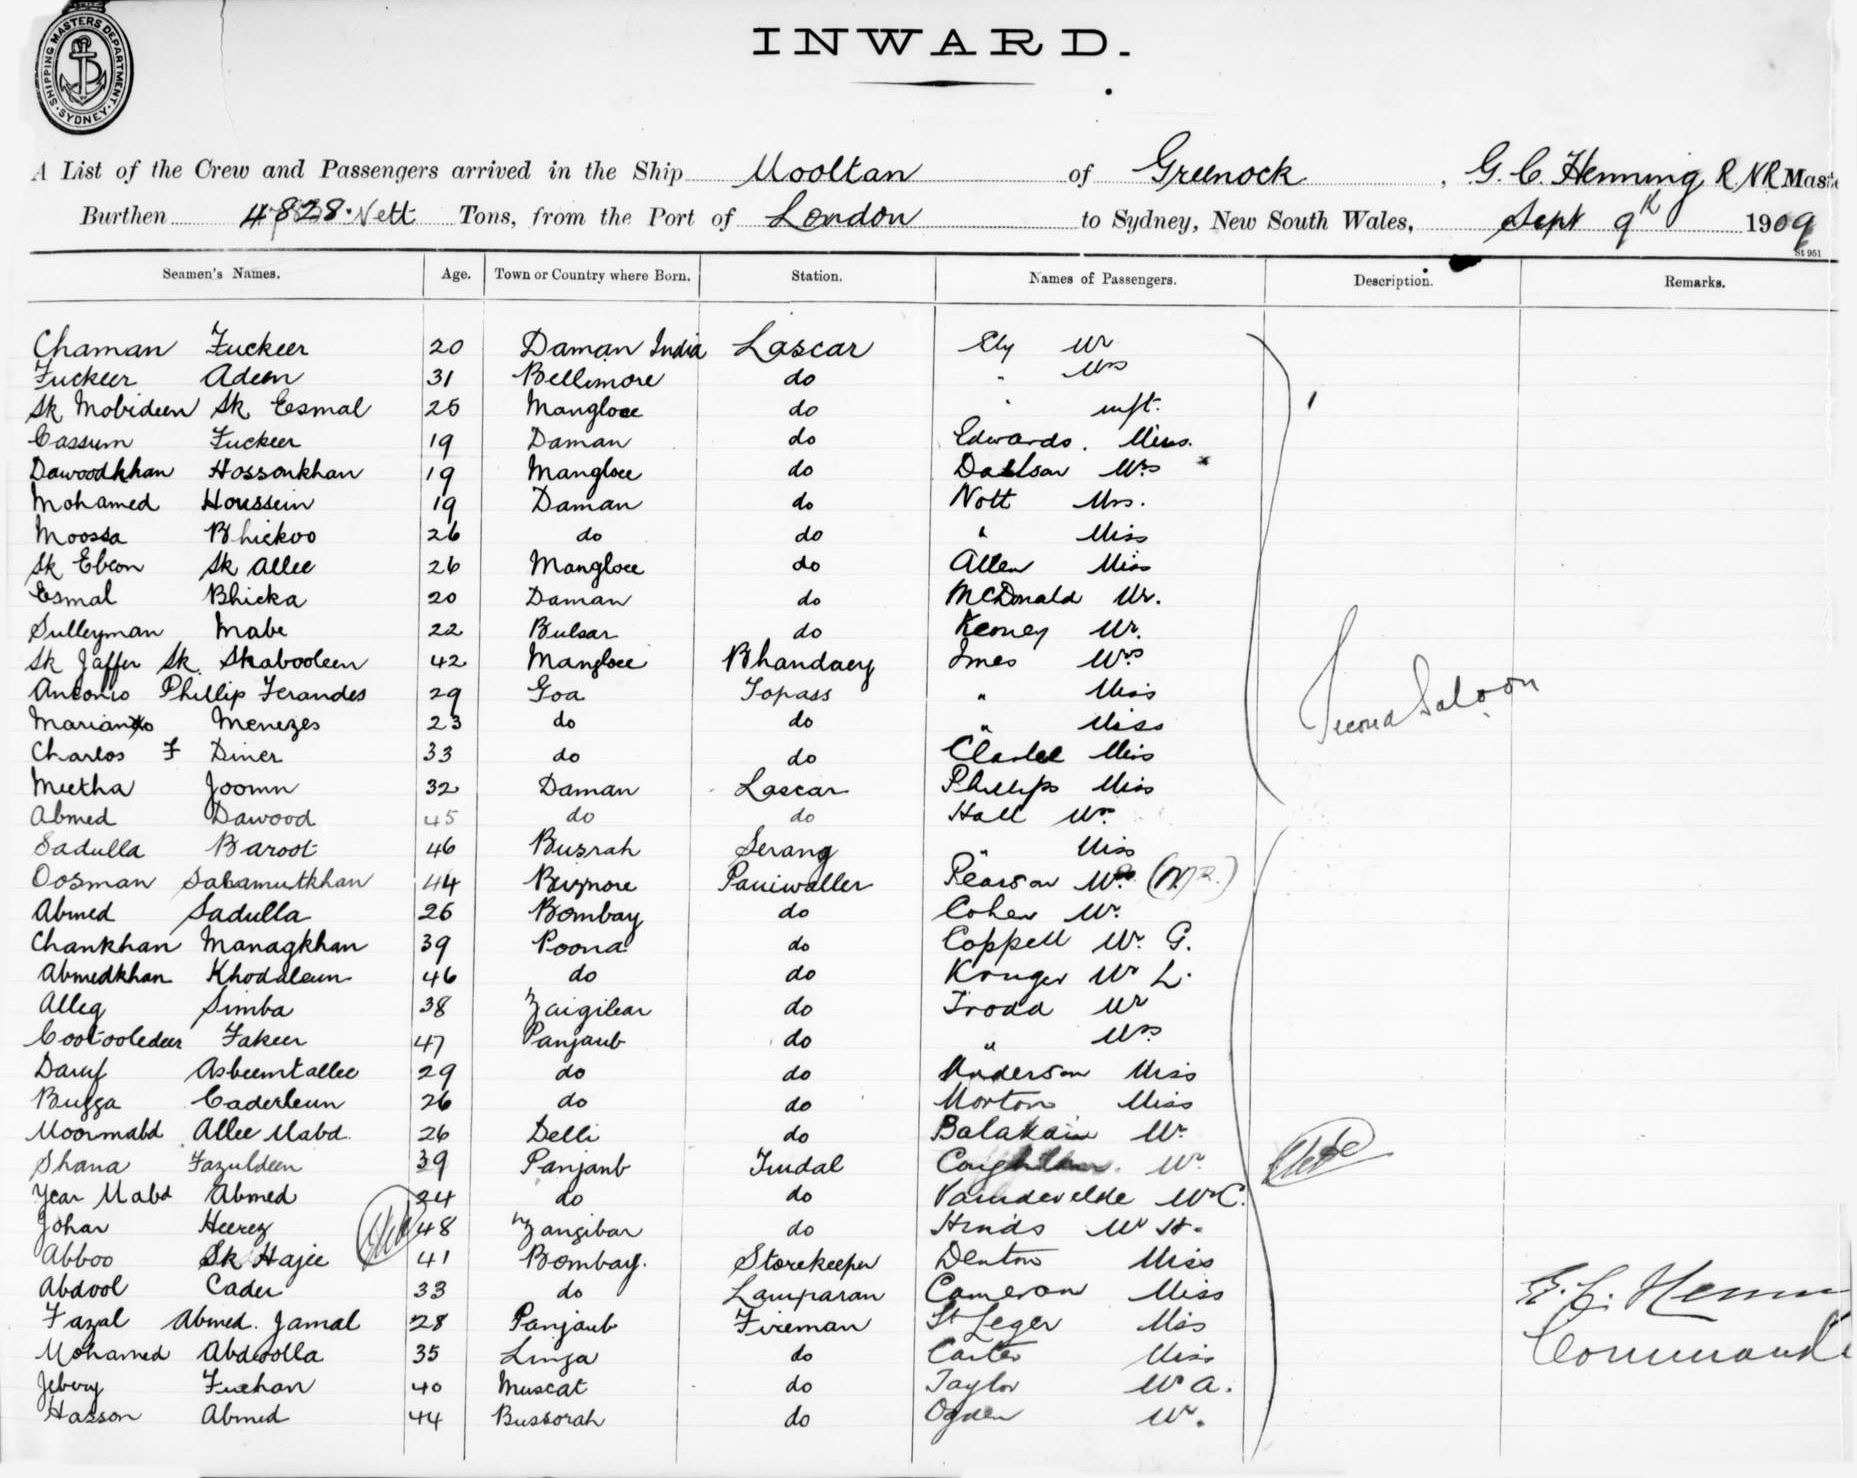 SHIPPING MASTERS DEPARTMENT
SYDNEY
INWARD.
A List of the Crew and Passengers arrived in the Ship Mooltan of Greenock, G. C. Henning R.N.R Master
Burthen 4828 Nett Tons, from the Port of London to Sydney, New South Wales, Sept 9th 1909
St 951
Seamen's Names. Age. Town or Country where Born. Station. Names of Passengers. Description. Remarks.
Chaman Fuckeer 20 Daman India Lascar Ely Mr
Fuckeer Adem 31 Bellimore do " Mrs
Sk Mobideen Sk Eesmal 25 Mangloee do " inft.
Cassum Fuckeer 19 Daman do Edwards. Miss.
Dawoodkhan Hossonkhan 19 Mangloee do Mrs
Mohamed Houssein 19 Daman do Nott Mrs.
Moossa Bhickoo 26 do do " Miss
Sk Ebron Sk Allee 26 Mangloee do Allen Miss
Esmal Bhicka 20 Daman do McDonald Mr.
Sulleyman Mabe 22 Bulsar do Keoney Mr.
Sk Jaffer Sk Skabooleen 42 Mangloee Bhandaey Imes Mrs
Antonio Phillip Ferandes 29 Goa Topass " Miss
Mariano Menezes 23 do do " Miss
Charlos F Diner 33 do do Miss
Meetha Joomn 32 Daman Lascar Phillips Miss
Abmed Dawood 45 do do Hall Mrs
Second Saloon
Sadulla Baroot 46 Busrah Serang " Miss
Oosman Salamutkhan 44 Biznore Paniwaller Pearson (Mr.)
Abmed Sadulla 26 Bombay do Cohen Mr.
Chankhan Managkhan 39 Poona do Coppell Mr. G.
Abmedkhan Khodaleun 46 do do Kruger Mr L.
Alleg Simba 38 Zaigilear do Trodd Mr
Cootooledeer Fakeer 47 Panjaub do " Mrs
Daruf Asbeemtallee 29 do do Anderson Miss
Bugga Caderleun 26 do do Morton Miss
Moormabd Allee Mabd. 26 Delli do Mr.
Shana Fazuldeen 39 Panjanb Tindal Mr.
Year Mabd Abmed 34 do do Vandevelde Mr C.
Johar Heerez 48 Zangibar do Hinds Mr H.
Abboo Sk Hajee 41 Bombay. Storekeeper Denton Miss
Abdool Cader 33 do Lamparan Cameron Miss
Fazal Abmed. Jamal 28 Panjaub Fireman St Leger Miss
Mohamed Abdoolla 35 Linga do Carter Miss
Jebery Fuehan 40 Muscat do Taylor Mr A.
Hasson Abmed 44 Bussorah do Ogden Mr.
G. C. Henn
Commande